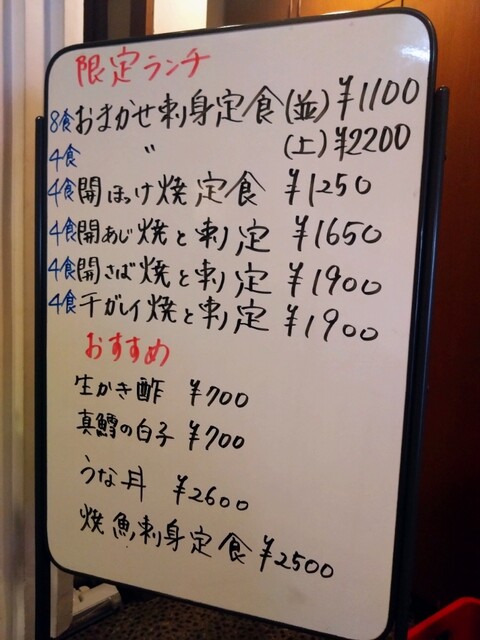 限定ランチ
8食おまかせ刺身定食(並)¥1100
4食 〃 (上)¥2200
4食開ほっけ焼定食 ¥1250
4食開あじ焼と刺定 ¥1650
4食開さば焼と刺定 ¥1900
4食干ガレイ焼と刺定 ¥1900
おすすめ
生かき酢 ¥700
真鱈の白子 ¥700
うな丼 ¥2600
焼魚刺身定食 ¥2500